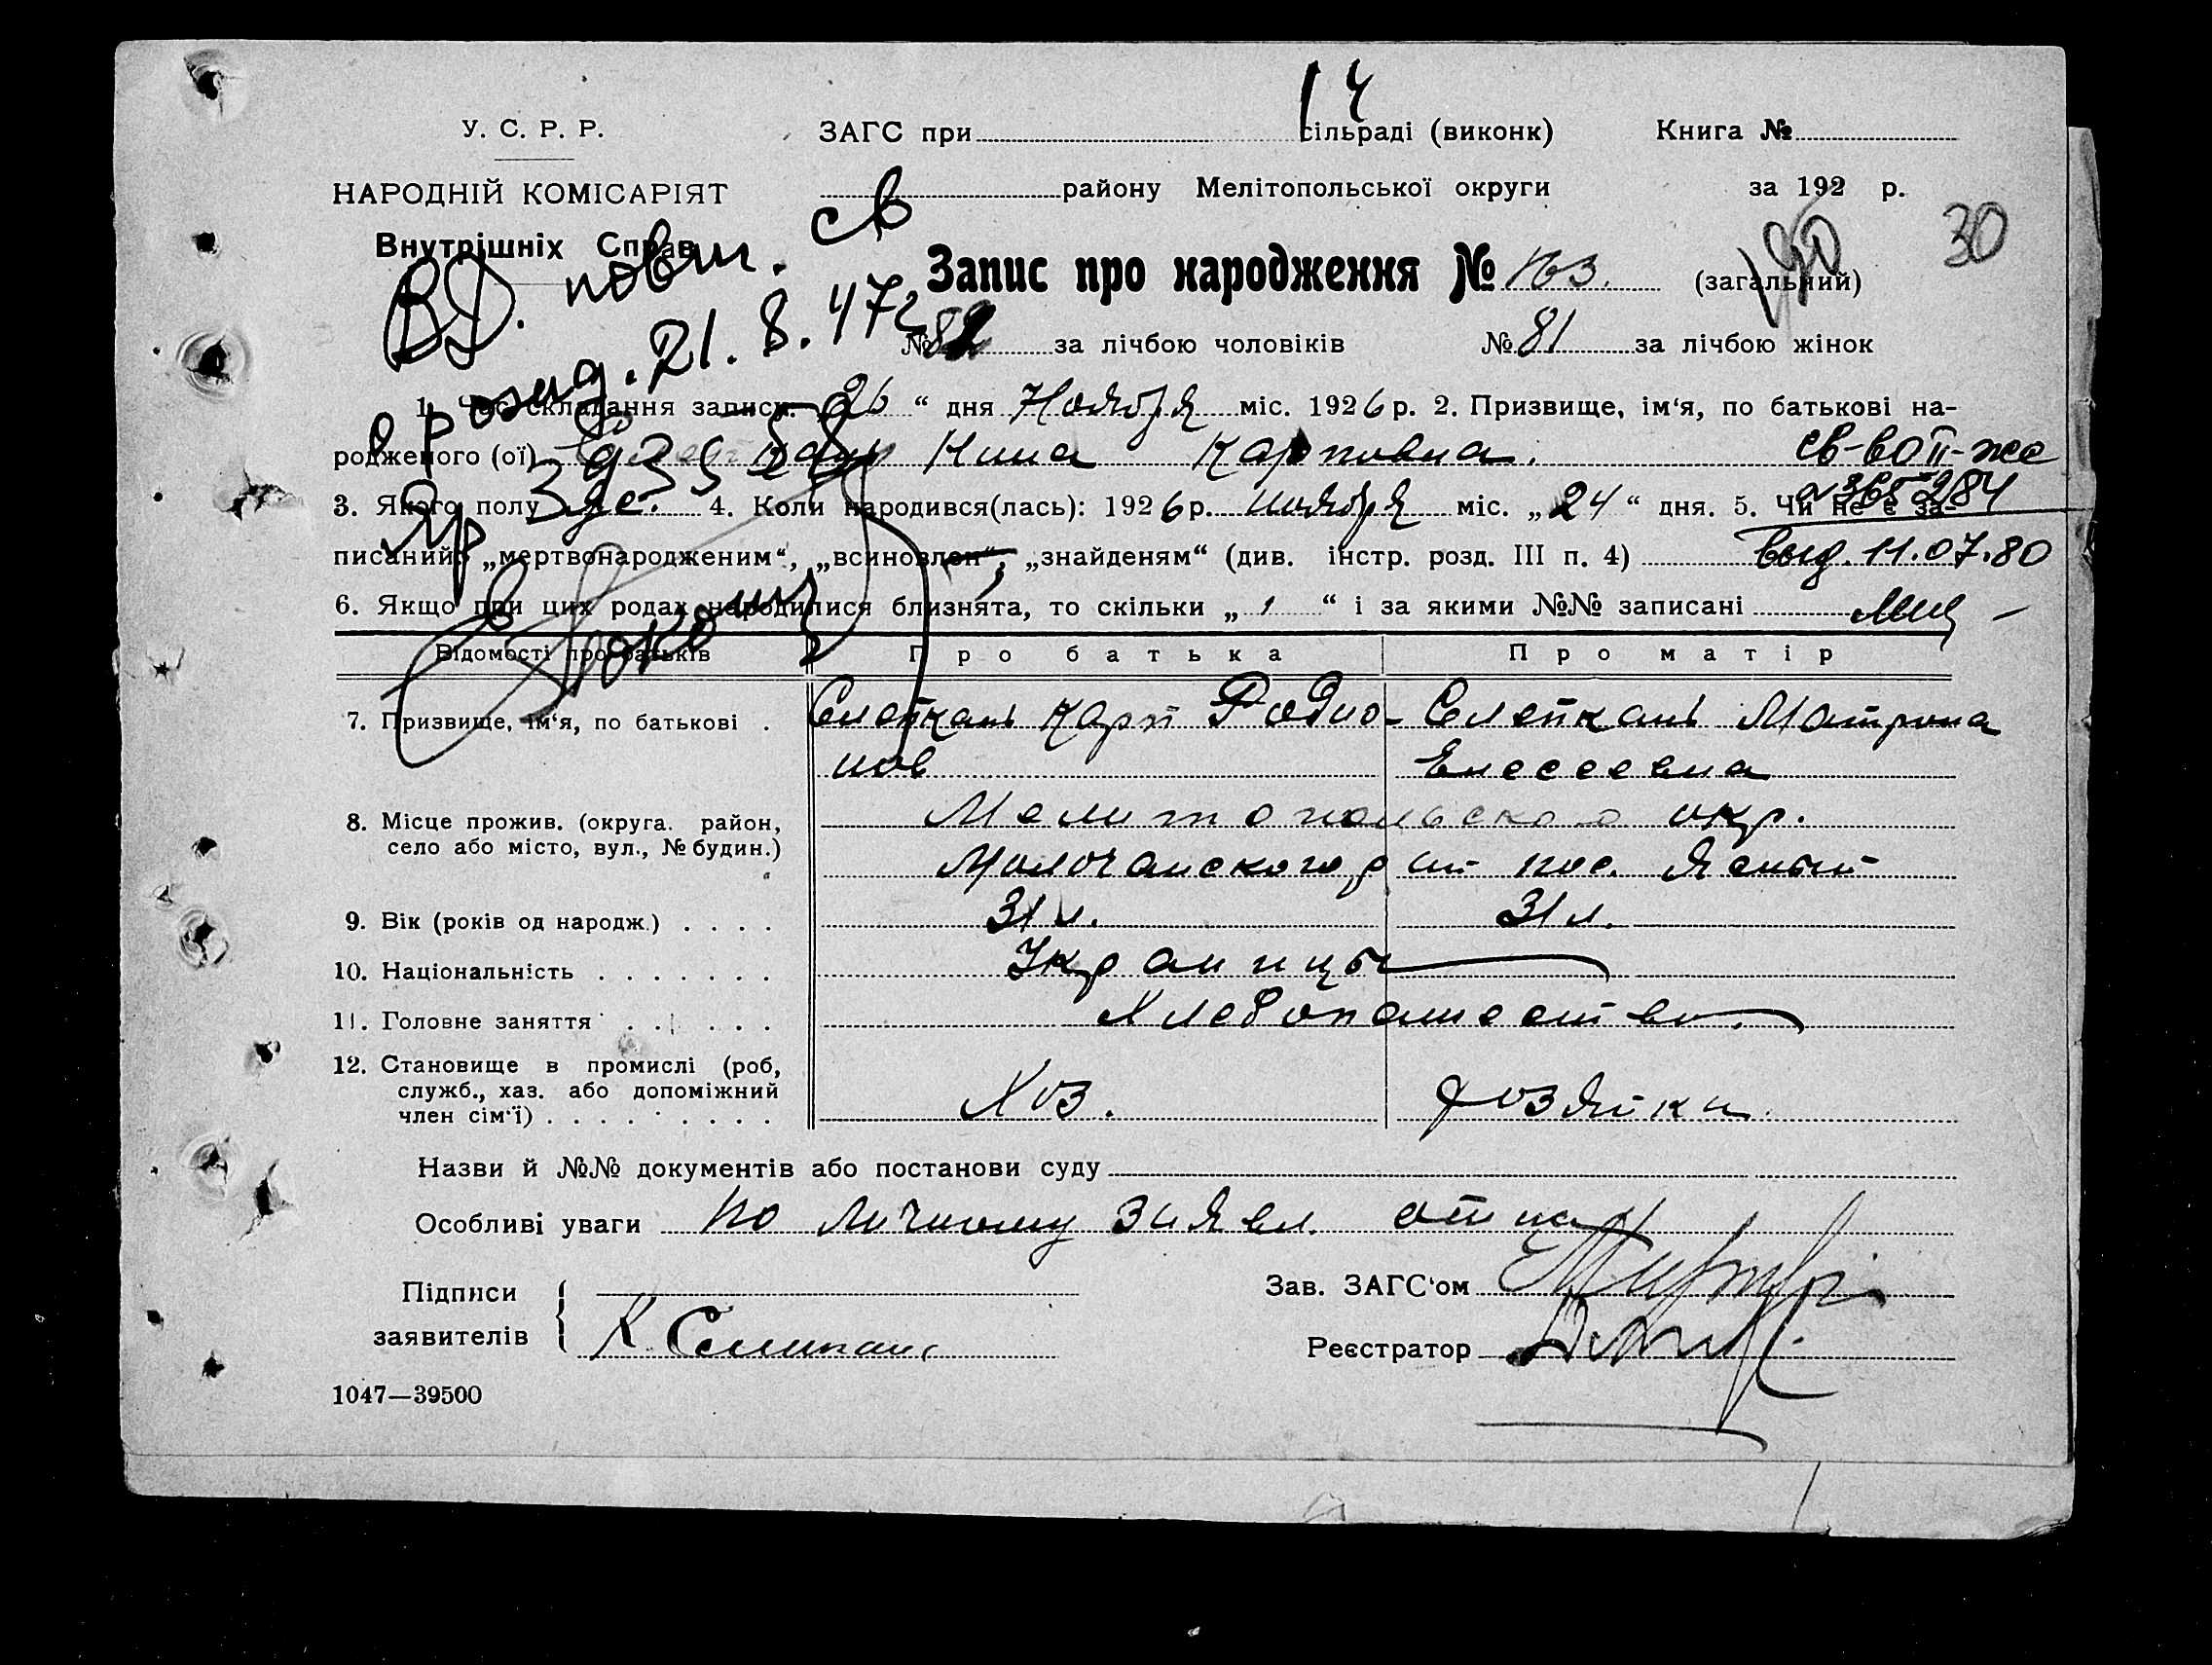 14
У. С. Р. Р.
ЗАГС при сільраді (виконк) Книга №
НАРОДНІЙ КОМІСАРІЯТ
району Мелітопольської округи за 192 р.
Внутрішніх Справ
30
ВД. повт. св
Запис про народження № 163. (загальний)
21.8.47г
№ 82 за лічбою чоловіків № 81 за лічбою жінок
1. Час складання запису. 26 “ дня Ноября міс. 1926 р. 2. Призвище, ім‘я, по батькові на-
родженого (ої) Нина Карповна.
св-во II-жс
№ 365284
3. Якого полу Же. 4. Коли народився(лась): 1926 р. ноября міс. „ 24 “ дня. 5. Чи не є за-
писаний: „мертвонародженим“, „всиновлен“, „знайденям“ (див. інстр. розд. III п. 4) выд. 11.07.80
6. Якщо при цих родах народилися близнята, то скільки „ 1 “ і за якими №№ записані
Відомості про батьків Про батька Про матір
7. Призвище, ім‘я, по батькові . Слепкань Карп Родио- Слепкань Матрона
нов Елесеевна
8. Місце прожив. (округа. район, село або місто, вул., № будин.) Мелитопольского окр.
Молочанского р на пос. Ясный
9. Вік (років од народж.) . . . . 31 л. 31 л.
10. Національність . . . . . . . Украинцы
11. Головне заняття . . . . . . Хлебопашество.
12. Становище в промислі (роб, служб., хаз. або допоміжний член сім‘ї) . . . . . . . . Хоз. хозяйка
Назви й №№ документів або постанови суду
Особливі уваги по личному заявл. отца
Підписи
заявителів
К.
Зав. ЗАГС‘ом
Реєстратор
1047—39500